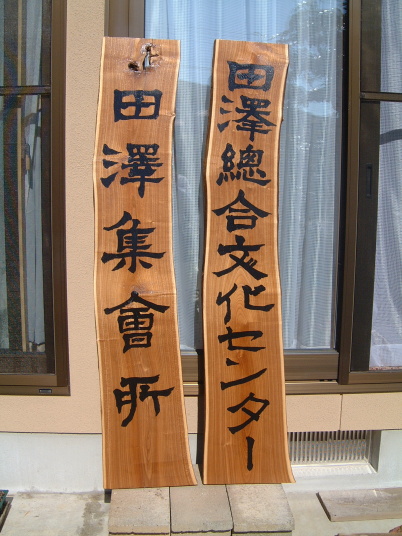 田澤總合文化センター
田澤集會所